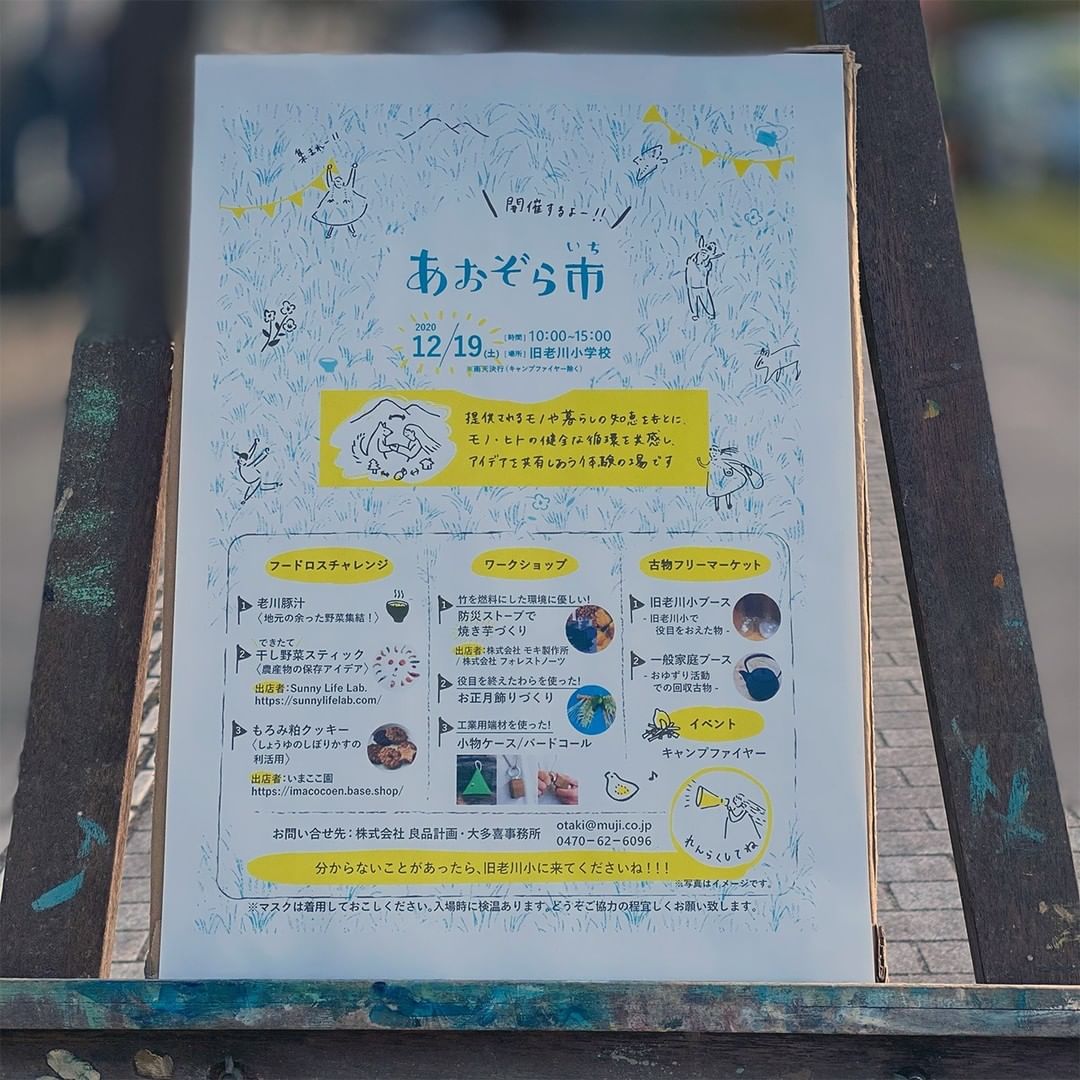 集まれー!!
開催するよー!!
いち
あおぞら市
2020
12/19(土)
[時間] 10:00~15:00
[場所] 旧老川小学校
※雨天決行(キャンプファイヤー除く)
提供されるモノや暮らしの知恵をもとに、
モノ・ヒトの健全な循環を共感し、
アイデアを共有しあう体験の場です
フードロスチャレンジ
1 老川豚汁
〈地元の余った野菜集結!〉
できたて
2 干し野菜スティック
〈農産物の保存アイデア〉
出店者:Sunny Life Lab.
https://sunnylifelab.com/
3 もろみ粕クッキー
〈しょうゆのしぼりかすの
利活用〉
出店者:いまここ園
https://imacocoen.base.shop/
ワークショップ
1 竹を燃料にした環境に優しい!
防災ストーブで
焼き芋づくり
出店者:株式会社 モキ製作所
/ 株式会社 フォレストノーツ
2 役目を終えたわらを使った!
お正月飾りづくり
3 工業用端材を使った!
小物ケース/バードコール
古物フリーマーケット
1 旧老川小ブース
- 旧老川小で
役目をおえた物 -
2 一般家庭ブース
- おゆずり活動
での回収古物 -
イベント
キャンプファイヤー
お問い合せ先:株式会社 良品計画・大多喜事務所
otaki@muji.co.jp
0470-62-6096
れんらくしてね
分からないことがあったら、旧老川小に来てくださいね!!!
※写真はイメージです。
※マスクは着用しておこしください。入場時に検温あります。どうぞご協力の程宜しくお願い致します。